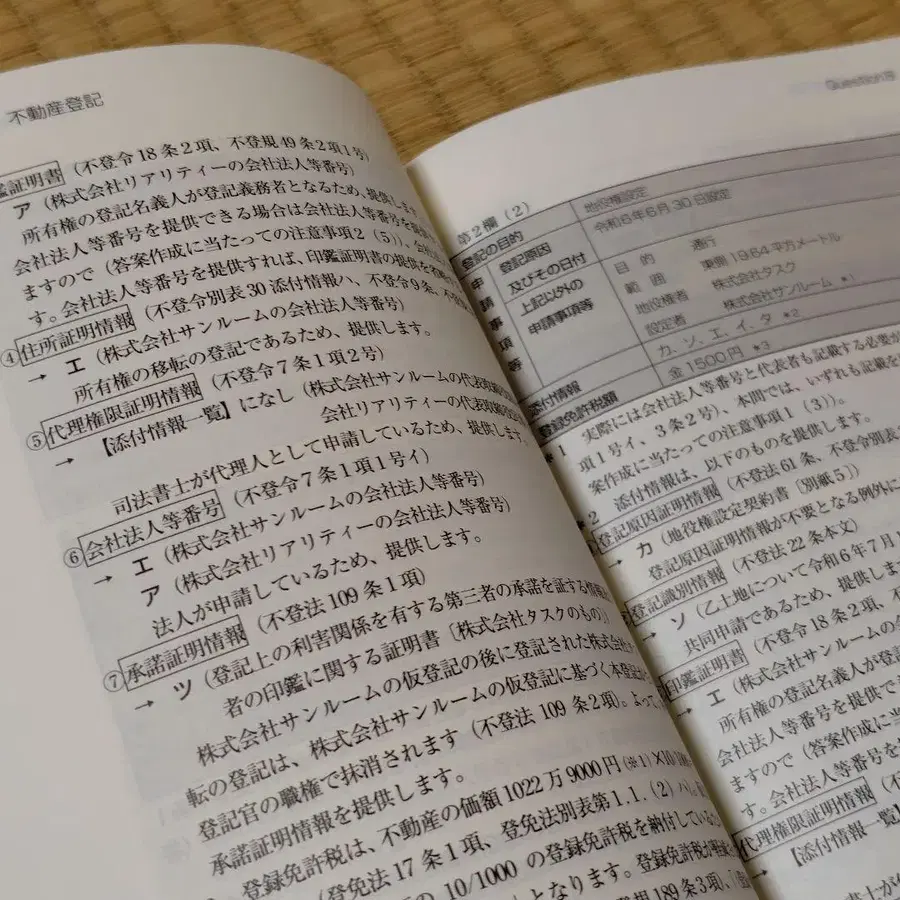 不動産登記
鑑証明書（不登令18条2項、不登規49条2項1号）
ア（株式会社リアリティーの会社法人等番号）
所有権の登記名義人が登記義務者となるため、提供します
会社法人等番号を提供できる場合は会社法人等番号を
ますので（答案作成に当たっての注意事項2（5））、
す。会社法人等番号を提供すれば、印鑑証明書の提供を
④住所証明情報（不登令別表30添付情報ヘ、不登令9条、
→ エ（株式会社サンルームの会社法人等番号）
所有権の移転の登記であるため、提供します。
⑤代理権限証明情報（不登令7条1項2号）
→ 【添付情報一覧】になし（株式会社サンルームの代表取締
会社リアリティーの代表取締
司法書士が代理人として申請しているため、提供します。
⑥会社法人等番号（不登令7条1項1号イ）
→ エ（株式会社サンルームの会社法人等番号）
ア（株式会社リアリティーの会社法人等番号）
法人が申請しているため、提供します。
⑦承諾証明情報（不登法109条1項）
→ ツ（登記上の利害関係を有する第三者の承諾を証する情報
者の印鑑に関する証明書〔株式会社タスクのもの〕）
株式会社サンルームの仮登記の後に登記された株式会社
転の登記は、株式会社サンルームの仮登記に基づく本登記
登記官の職権で抹消されます（不登法109条2項）。よって、
承諾証明情報を提供します。
登録免許税は、不動産の価額1022万9000円（※1）×10/1000
（登免法17条1項、登免法別表第1.1.（2）ハ）。
の10/1000の登録免許税を納付している
となります。登録免許税が
規189条3項、
Question
第2欄（2）
登記の目的 地役権設定
申請事項等
登記原因及びその日付 令和6年6月30日設定
上記以外の申請事項等
目的 通行
範囲 東側19.64平方メートル
地役権者 株式会社タスク
設定者 株式会社サンルーム *1
添付情報 カ、ソ、エ、イ、タ *2
登録免許税額 金1500円 *3
*1 実際には会社法人等番号と代表者も記載する必要が
項1号イ、3条2号）、本問では、いずれも記載を
案作成に当たっての注意事項1（3））。
*2 添付情報は、以下のものを提供します。
登記原因証明情報（不登法61条、不登令別表
→ カ（地役権設定契約書〔別紙5〕）
登記原因証明情報が不要となる例外に
登記識別情報（不登法22条本文）
→ ソ（乙土地について令和6年7月1
共同申請であるため、提供しま
印鑑証明書（不登令18条2項、不
→ エ（株式会社サンルームの会
所有権の登記名義人が登記
会社法人等番号を提供でき
ますので（答案作成に当
す。会社法人等番号を
代理権限証明情報（不
→ 【添付情報一覧】
書士が